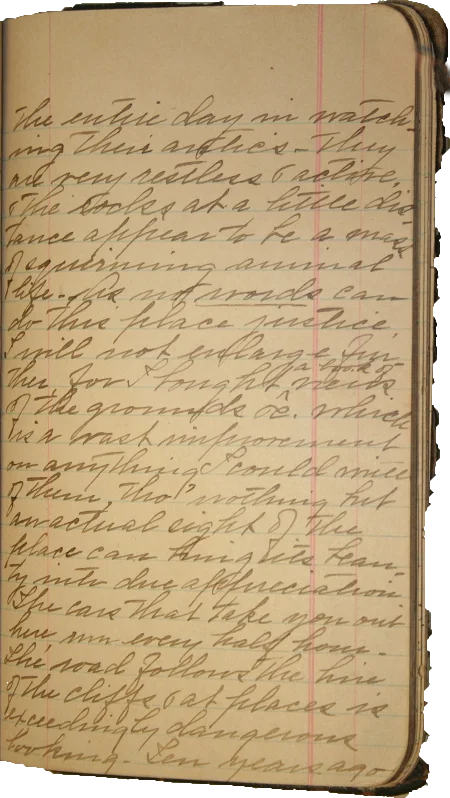 the entire day in watch-
ing their antics. They
are very restless & active,
& the rocks at a little dis-
tance appear to be a mass
of squirming animal
life. As no words can
do this place justice
I will not enlarge fur-
ther, for I bought a book of views
of the grounds &c. which
is a vast improvement
on anything I could write
of them, tho' nothing but
an actual sight of the
place can bring its beau-
ty into due appreciation
The cars that take you out
here run every half hour.
The road follows the line
of the cliffs & at places is
exceedingly dangerous
looking. Ten years ago